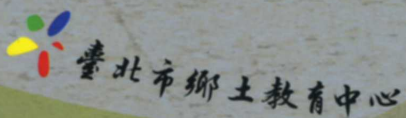 臺北市鄉土教育中心